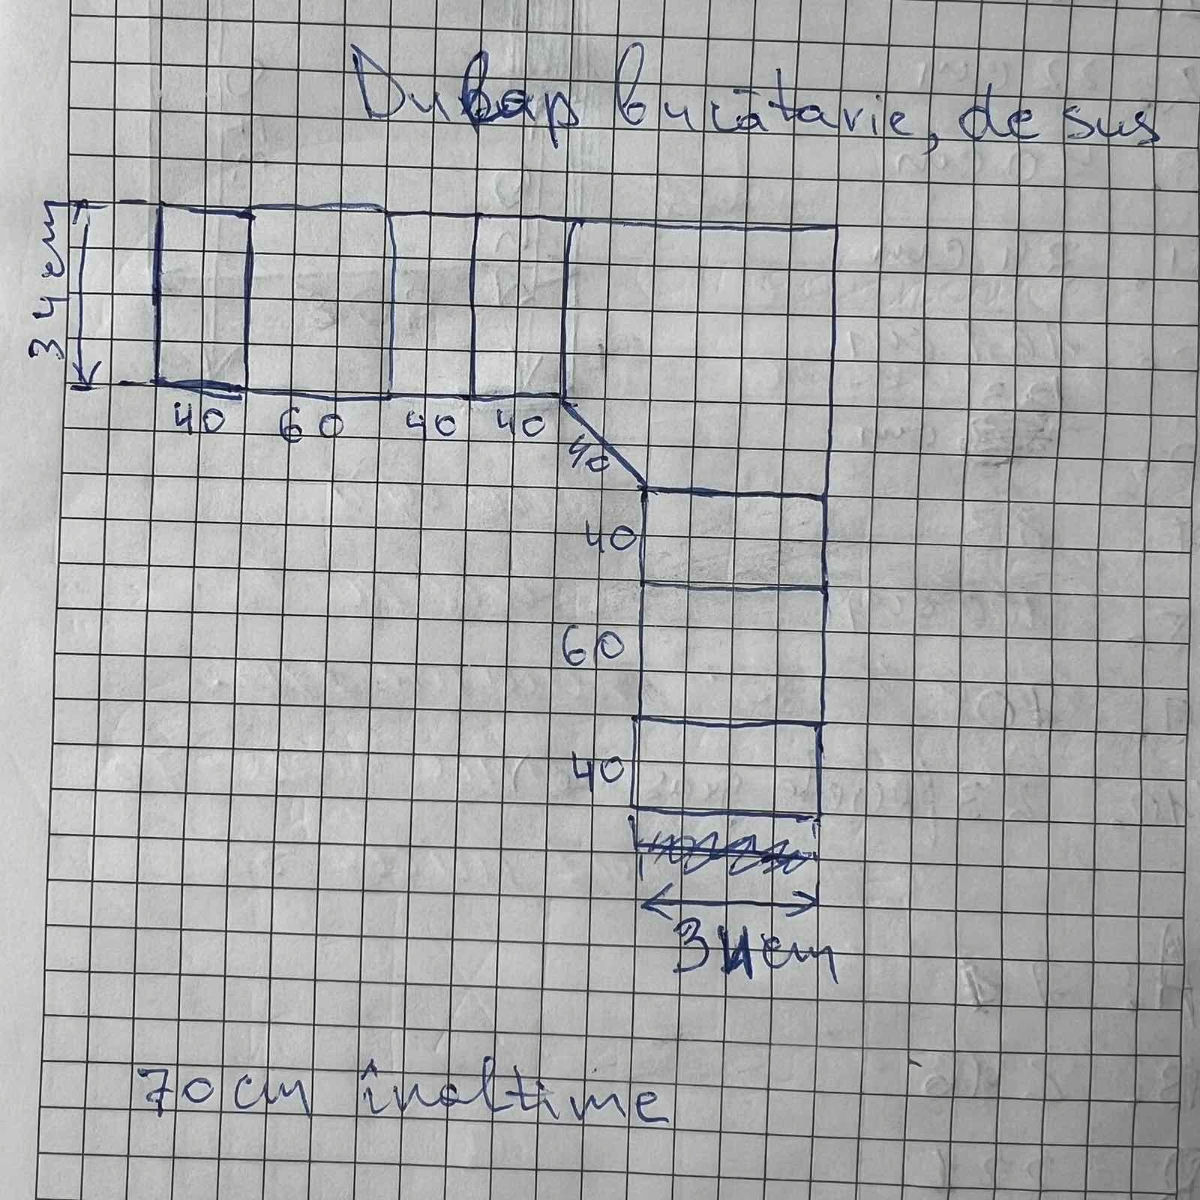 Dulap bucătarie, de sus
34 cm
40 60 40 40
40
40
60
40
34 cm
70 cm înaltime